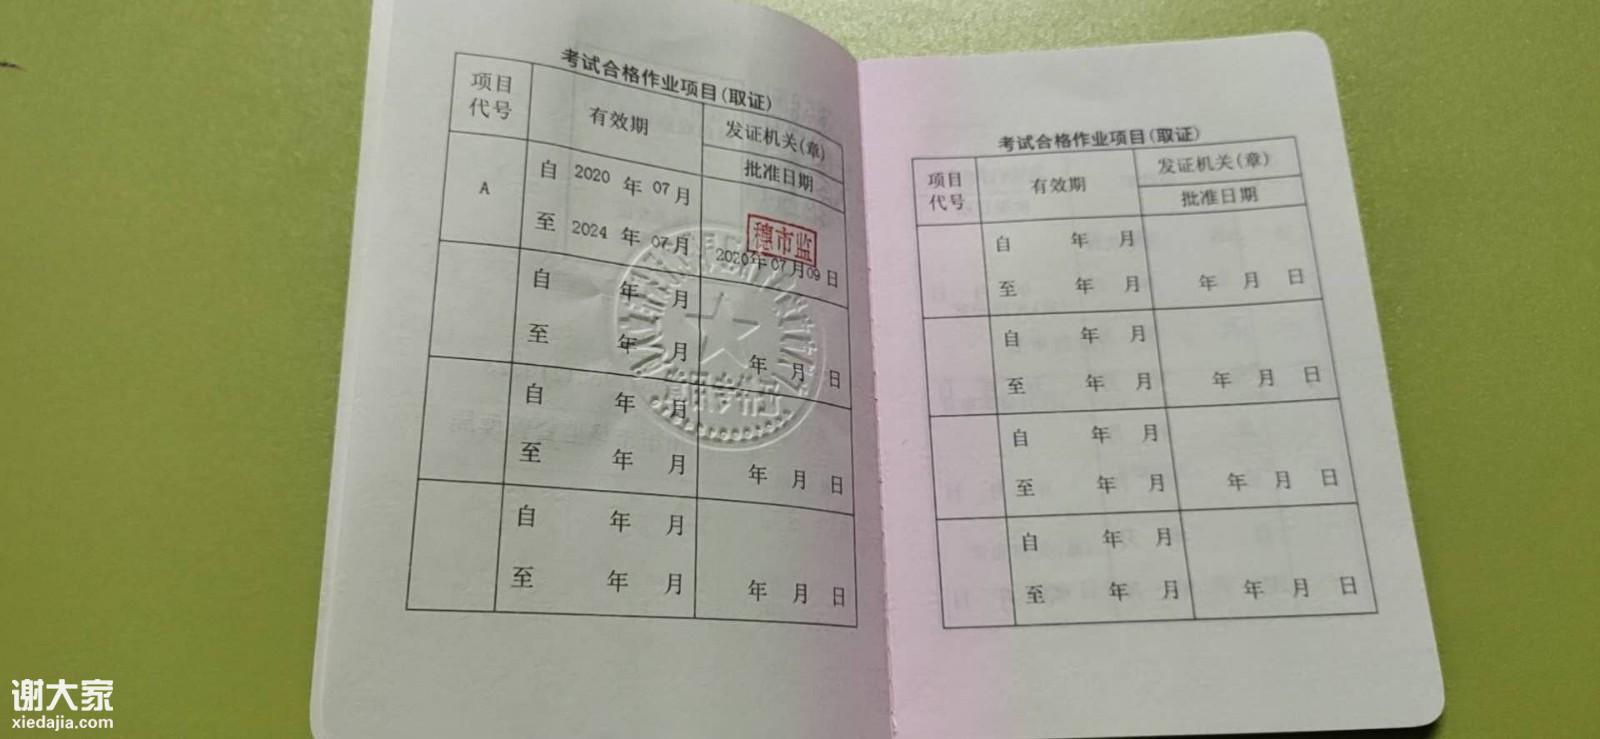 考试合格作业项目(取证)
项目
代号
有效期
发证机关(章)
批准日期
A
自 2020 年 07 月
至 2024 年 07 月
穗市监
2020年07月09日
自 年 月
至 年 月
年 月 日
自 年 月
至 年 月
年 月 日
自 年 月
至 年 月
年 月 日
考试合格作业项目(取证)
项目
代号
有效期
发证机关(章)
批准日期
自 年 月
至 年 月
年 月 日
自 年 月
至 年 月
年 月 日
自 年 月
至 年 月
年 月 日
自 年 月
至 年 月
年 月 日
谢大家
xiedajia.com